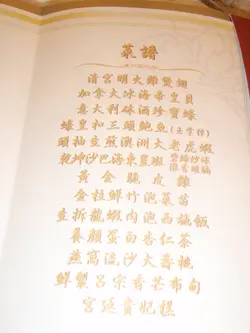 菜譜
清宮明大雞煲翅
加拿大冰海帝皇貝
意大利砵酒珍寶蠔
蠔皇扣三頭鮑魚
頭抽生煎澳洲大老虎蝦
乾坤沙巴海東星斑
黃金脆皮雞
金柱鮮竹泡菜苗
生拆龍蝦肉泡西施飯
養顏蛋白杏仁茶
燕窩流沙大壽桃
鮮製呂宋香芒布甸
宮廷貴妃糕